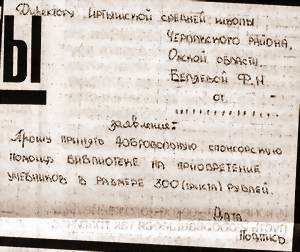 Директору Иртышской средней школы
Черлакского района,
Омской области,
Беляевой Ф.Н.
от
ы
заявление:
Прошу принять добровольную спонсорскую
помощь библиотеке на приобретение
учебников в размере 300 (триста) рублей.
Дата
Подпись